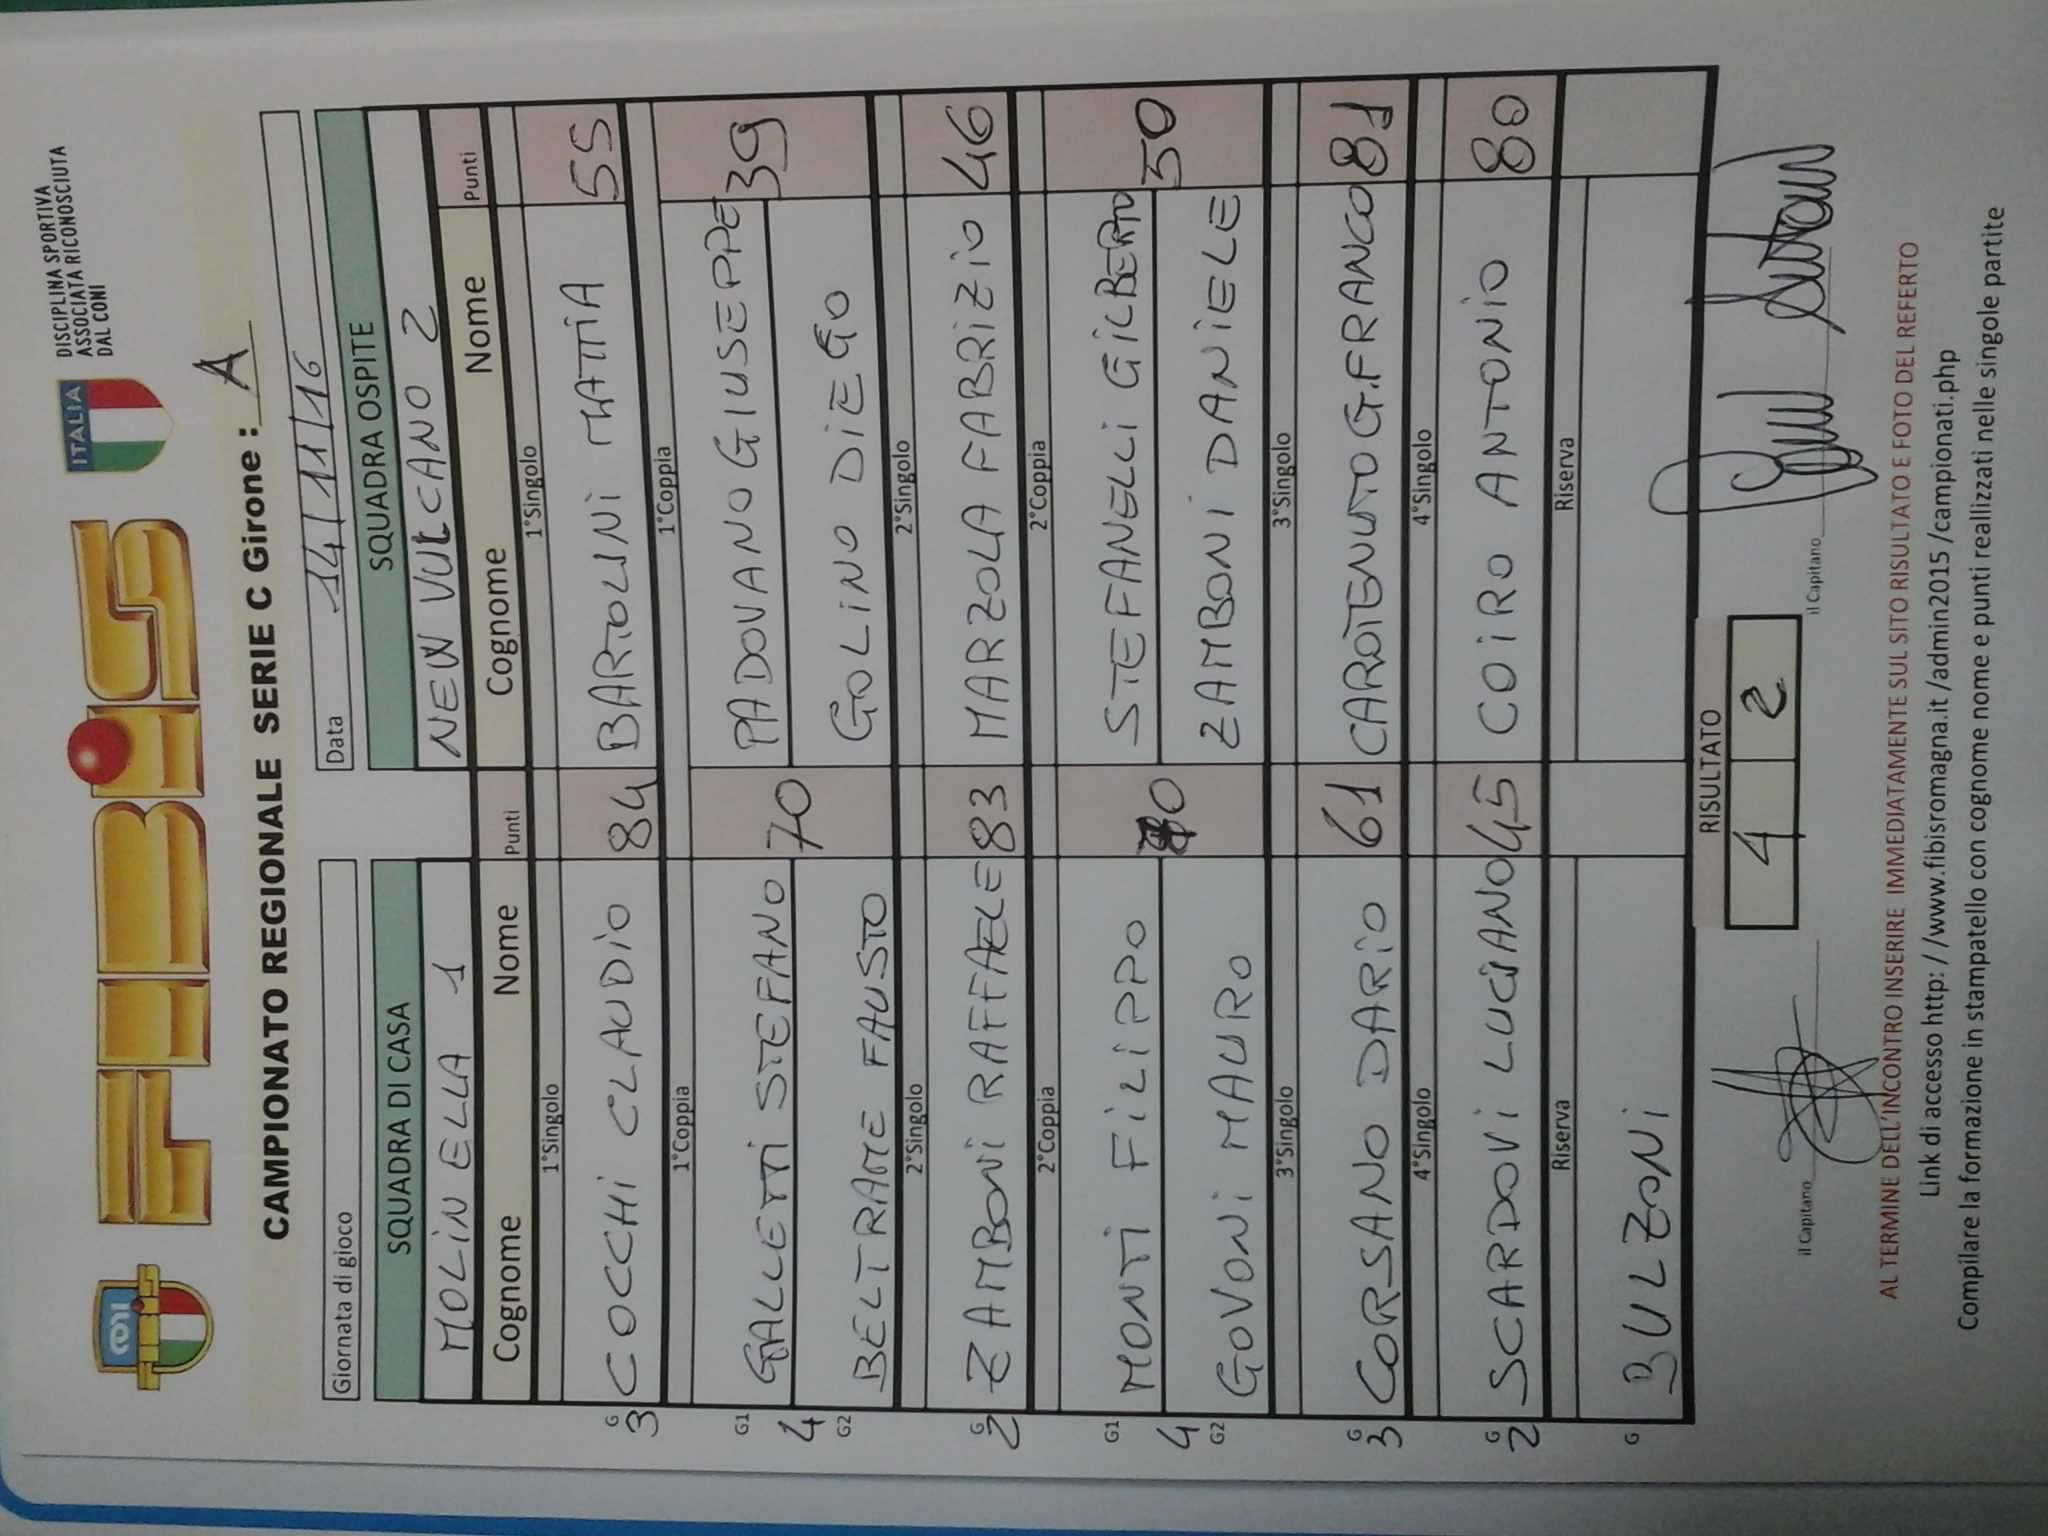 FIBiS
ITALIA
DISCIPLINA SPORTIVA
ASSOCIATA RICONOSCIUTA
DAL CONI
CAMPIONATO REGIONALE SERIE C Girone : A
Giornata di gioco
Data 14/11/16
SQUADRA DI CASA SQUADRA OSPITE
MOLINELLA 1 NEW VULCANO 2
Cognome Nome Punti Cognome Nome Punti
1°Singolo 1°Singolo
G 3 COCCHI CLAUDIO 84 BARTOLINI MATTIA 55
1°Coppia 1°Coppia
G1 GALLETTI STEFANO PADOVANO GIUSEPPE
4 70 39
G2 BELTRAME FAUSTO GOLINO DIEGO
2°Singolo 2°Singolo
G 2 ZAMBONI RAFFAELE 83 MARZOLA FABRIZIO 46
2°Coppia 2°Coppia
G1 MONTI FILIPPO STEFANELLI GILBERTO
4 50
G2 GOVONI MAURO ZAMBONI DANIELE
3°Singolo 3°Singolo
G 3 CORSANO DARIO 61 CAROTENUTO G.FRANCO 81
4°Singolo 4°Singolo
G 2 SCARDOVI LUCIANO 45 COIRO ANTONIO 80
Riserva Riserva
G BULZONI
RISULTATO
4 2
il Capitano il Capitano
AL TERMINE DELL'INCONTRO INSERIRE IMMEDIATAMENTE SUL SITO RISULTATO E FOTO DEL REFERTO
Link di accesso http: //www.fibisromagna.it /admin2015 /campionati.php
Compilare la formazione in stampatello con cognome nome e punti reallizzati nelle singole partite